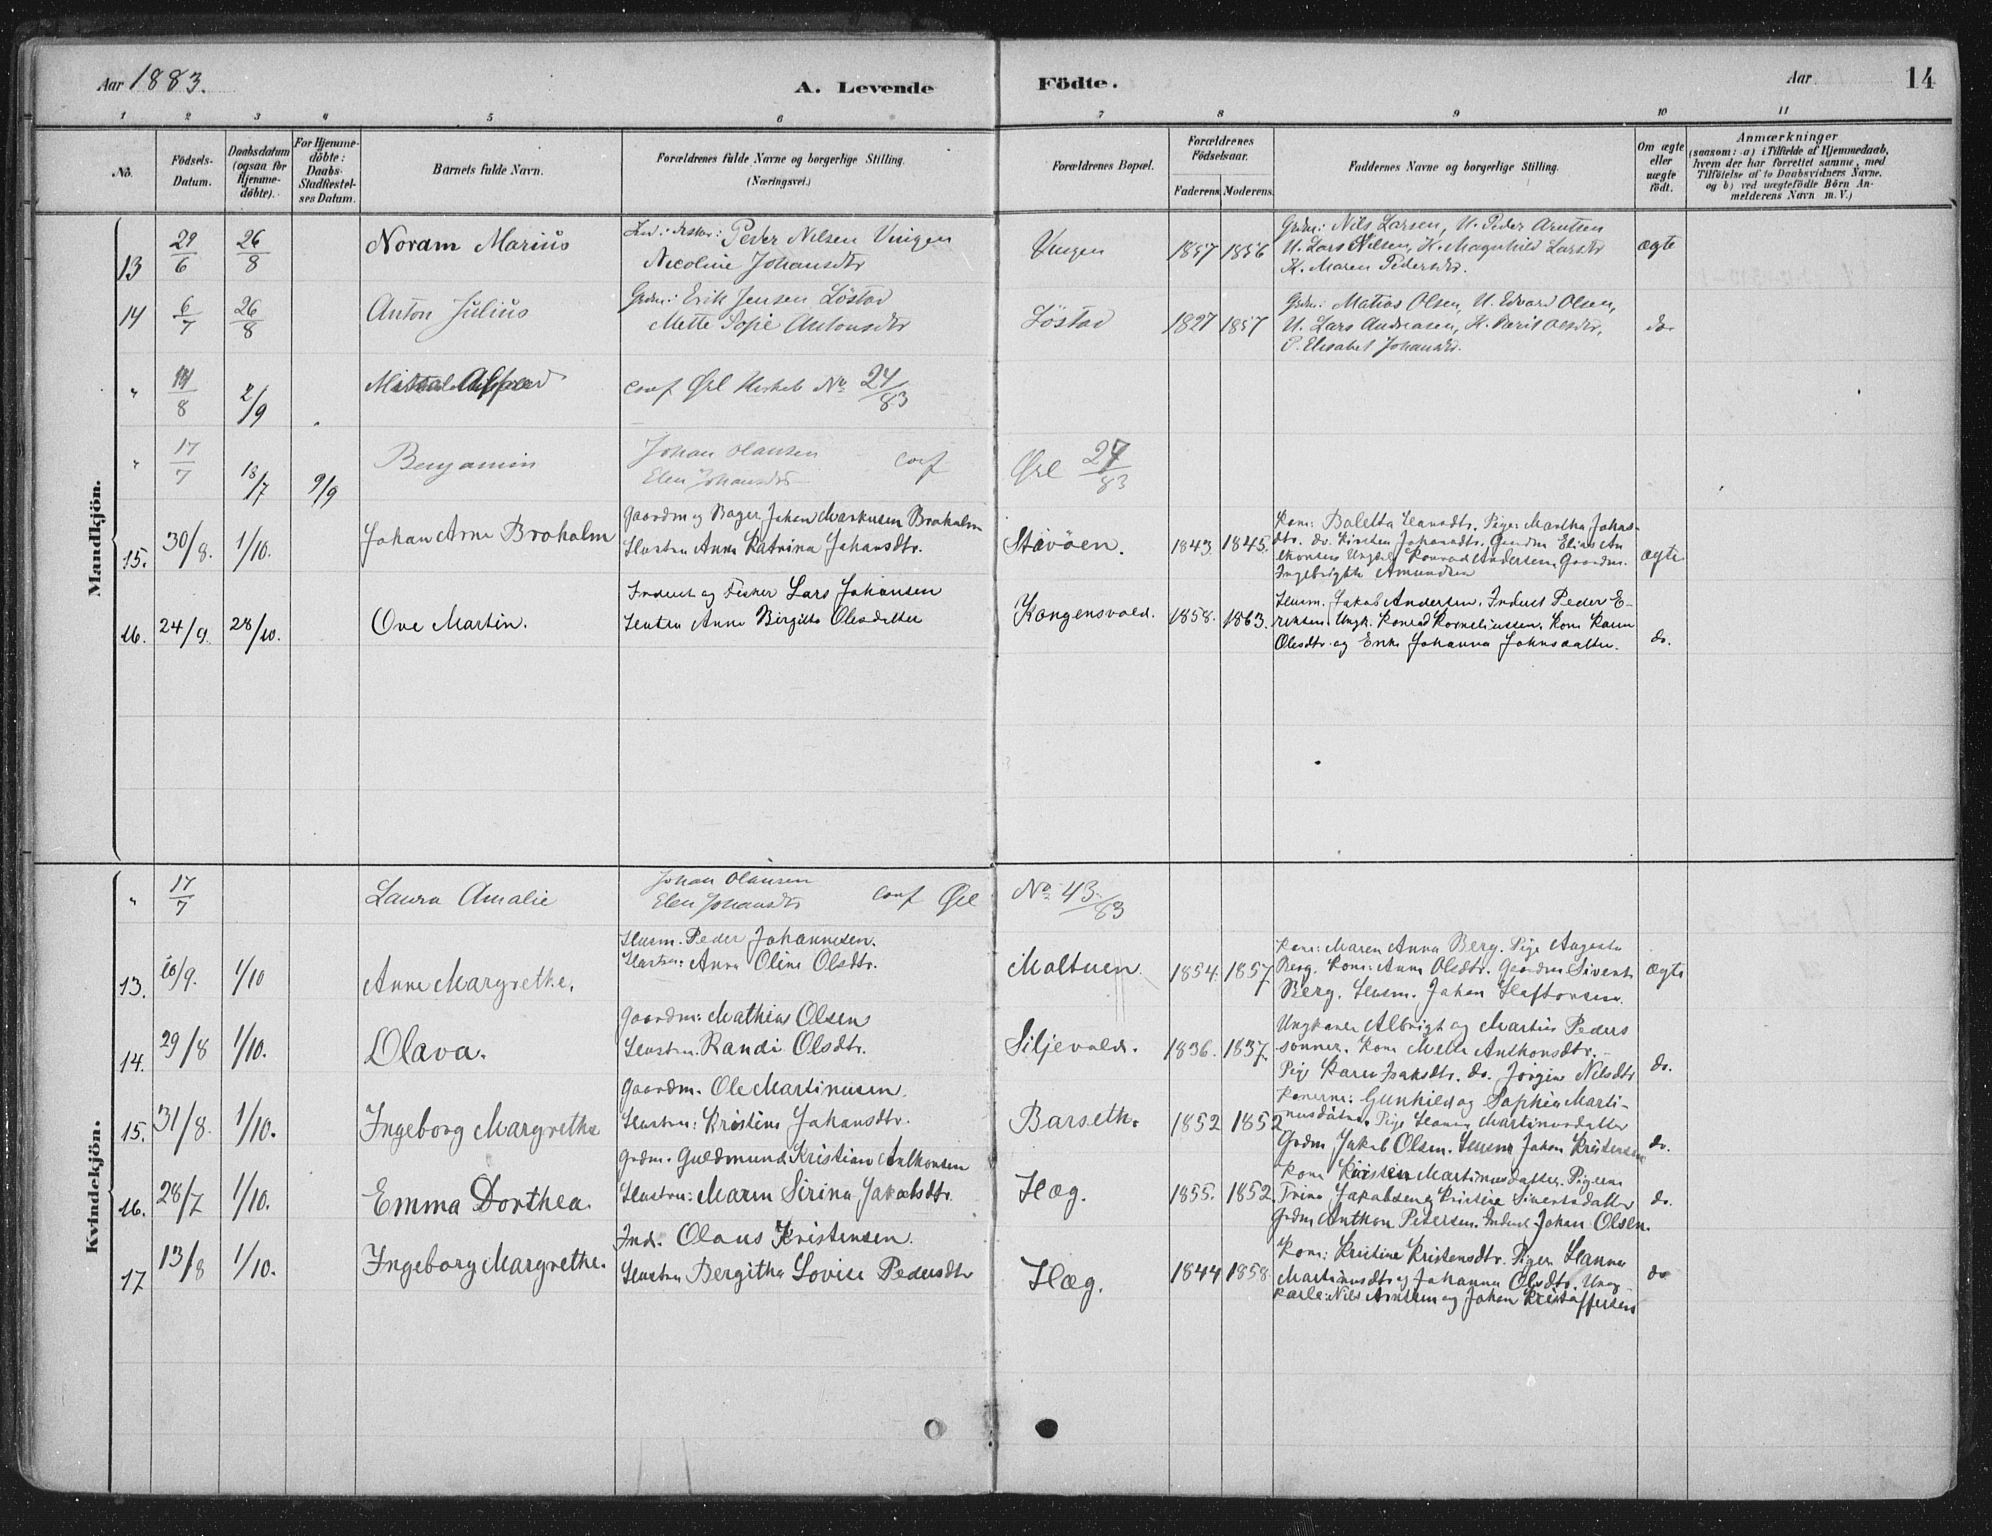 Aar 1883.
A. Levende
Födte.
Aar
14
1 2 3 4 5 6 7 8 9 10 11
No.
Födsels-
Datum.
Daabsdatum
(ogsaa for
Hjemme-
döbte).
For Hjemme-
döbte:
Daabs-
Stadfæstel-
ses Datum.
Barnets fulde Navn.
Forældrenes fulde Navne og borgerlige Stilling.
(Næringsvei.)
Forældrenes Bopæl.
Forældrenes
Födselsaar.
Faderens. Moderens.
Faddernes Navne og borgerlige Stilling.
Om ægte
eller
uægte
födt.
Anmærkninger
(saasom: a) i Tilfælde af Hjemmedaab,
hvem der har forrettet samme, med
Tilföielse af to Daabsvidners Navne.
og b) ved uægtefödte Börn An-
melderens Navn m. V.)
Mandkjön.
13 29/6 26/8 Noram Marius
Peder Nilsen Vingen
Nicoline Johansdtr
Vingen 1857 1856
Grdm: Nils Larsen, U. Peder Arntsen
U. Lars Nilsen, K. Magnhild Larsdtr
K. Maren Pedersdtr.
ægte
14 6/7 26/8 Anton Julius
Grdm: Erik Jensen Löstad
Mette Sofie Antonsdtr
Löstad 1827 1857
Grdm: Matias Olsen, U. Edvard Olsen,
U. Lars Andreasen, K. Berit Olsdtr,
P. Elisabet Johansdtr.
do
" 14/8 2/9
conf Ørl No 24/83
" 17/7 18/7 9/9 Benjamin
Johan Olausen conf
Elen Johansdtr
Ørl 27/83
15. 30/8. 1/10. Johan Arne Broholm
Gaardm og Bager Johan Markusen Broholm
Hustru Anne Katrina Johansdtr.
Stavöen. 1843. 1845.
Kone: Boletta Hansdtr. Pige: Martha Johans-
dtr. do. Kirsten Johansdtr. Gaardm Elias An
thonsen Ungk. Konrad Andersen, Gaardm.
Ingebrigth Amundsen
ægte
16. 24/9. 28/10. Ove Martin.
Inderst og Fisker Lars Johansen
Hustru Anne Birgitte Olesdatter
Kongensvold. 1858. 1863.
Husm. Jakob Andersen. Inderst Peder E-
riksen. Ungk. Konrad Korneliussen, Kone Karen
Olesdtr. og Enke Johanna Johnsdatter.
do.
Kvindekjön.
" 17/7 Laura Amalie
Johan Olausen
Elen Johansdtr conf Ørl
No 43/83
13. 10/9. 1/10 Anne Margrethe.
Husm. Peder Johannesen.
Hustru: Anne Oline Olsdtr.
Moltuen 1854. 1857.
Kone: Maren Anna Berg. Pige Augusta
Berg. Kone: Anne Olsdtr. Gaardm Sivert
Berg. Husm. Johan Haftorsen.
ægte
14. 29/8 1/10. Olava.
Gaardm: Mathias Olsen
Hustru. Randi Olsdtr.
Siljevold. 1836. 1837.
Ungkarle Albrigt og Martin Peders
sönner. Kone Mette Anthonsdtr.
Pige Karen Isaksdtr. do. Jörgine Nilsdtr
do.
15. 31/8. 1/10. Ingeborg Margrethe
Gaardm. Ole Martinusen.
Hustru: Kristine Johansdtr.
Barseth. 1852 1852
Konerne: Gunhild og Sophie Marti-
nusdötre, Pige Hanna Martinusdatter
Grdm Jakob Olsen. Husm Johan Kristensen
do.
16. 28/7 1/10. Emma Dorthea.
Grdm. Guldmund Kristian Anthonsen
Hustru: Maren Sirina Jakobsdtr.
Hæg. 1855. 1852.
Kone Kirsten Martinusdatter. Pigerne
Trine Jakobsen og Kristine Sivertsdatter
Grdm Anthon Petersen. Inderst Johan Olsen.
do.
17 13/8 1/10. Ingeborg Margrethe.
Ind. Olaus Kristensen.
Hustru Bergitha Lovise Pedersdtr
Hæg. 1844 1858
Kone: Kristine Kristensdtr. Piger Hanna
Martinusdtr og Johanna Olsdtr. Ung
karle: Nils Arntsen og Johan Kristoffersen
do